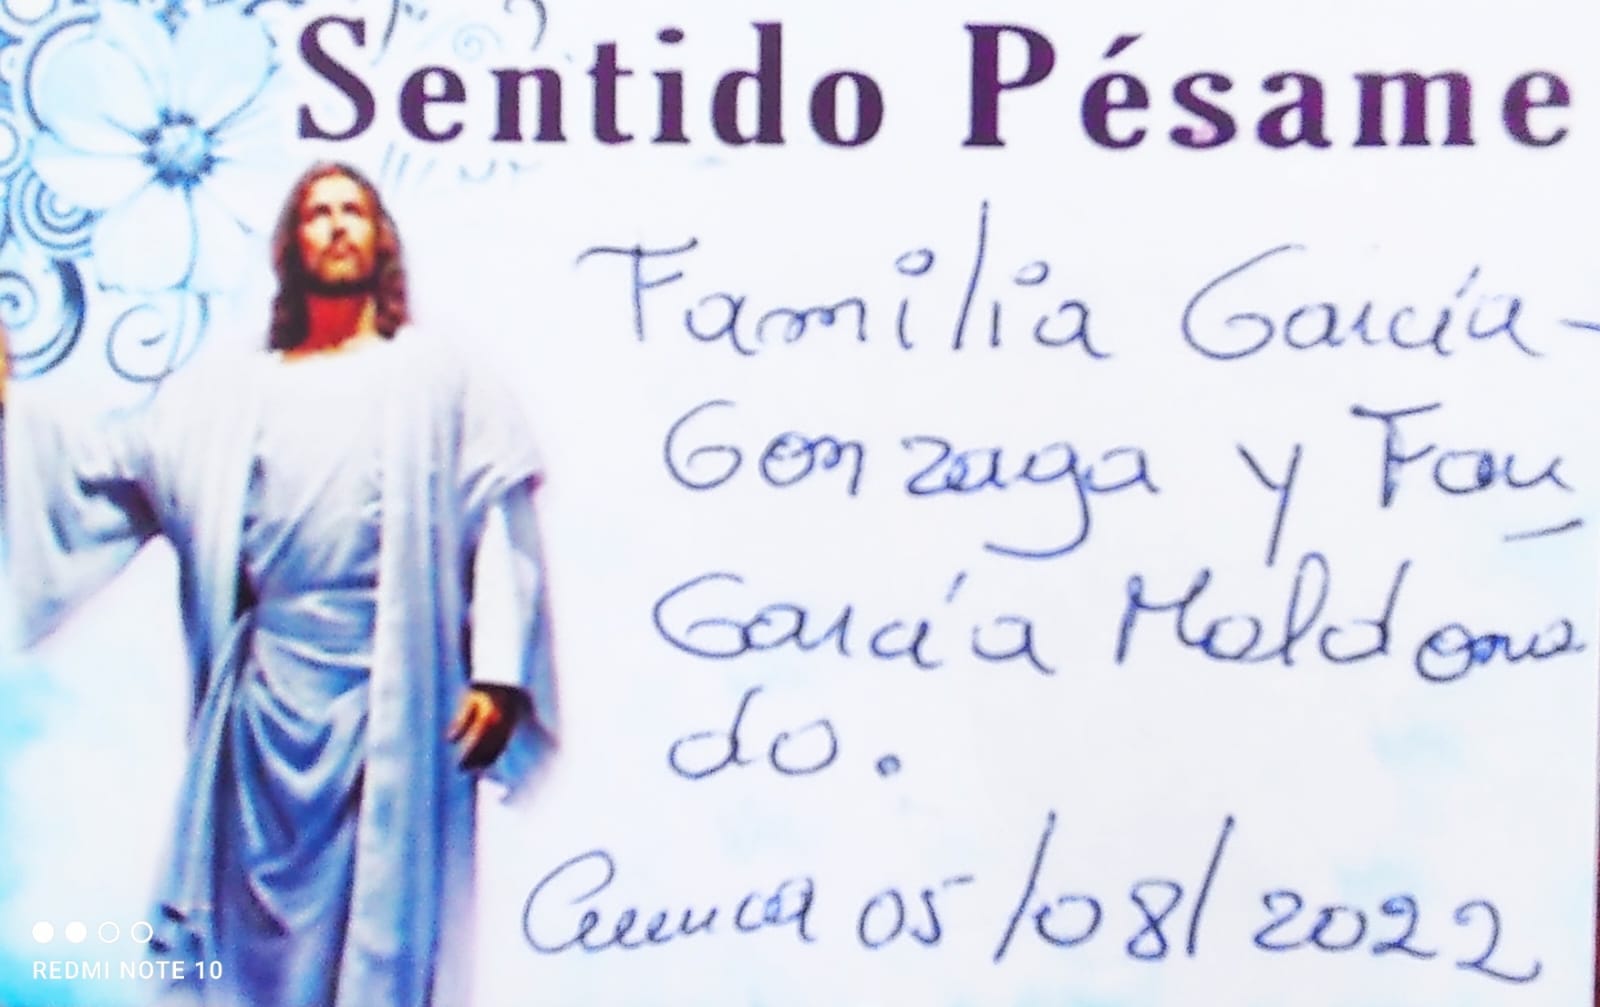 Sentido Pésame
Familia García-
Gonzaga y Fam
García Maldona
do.
Cuenca 05/08/2022
REDMI NOTE 10